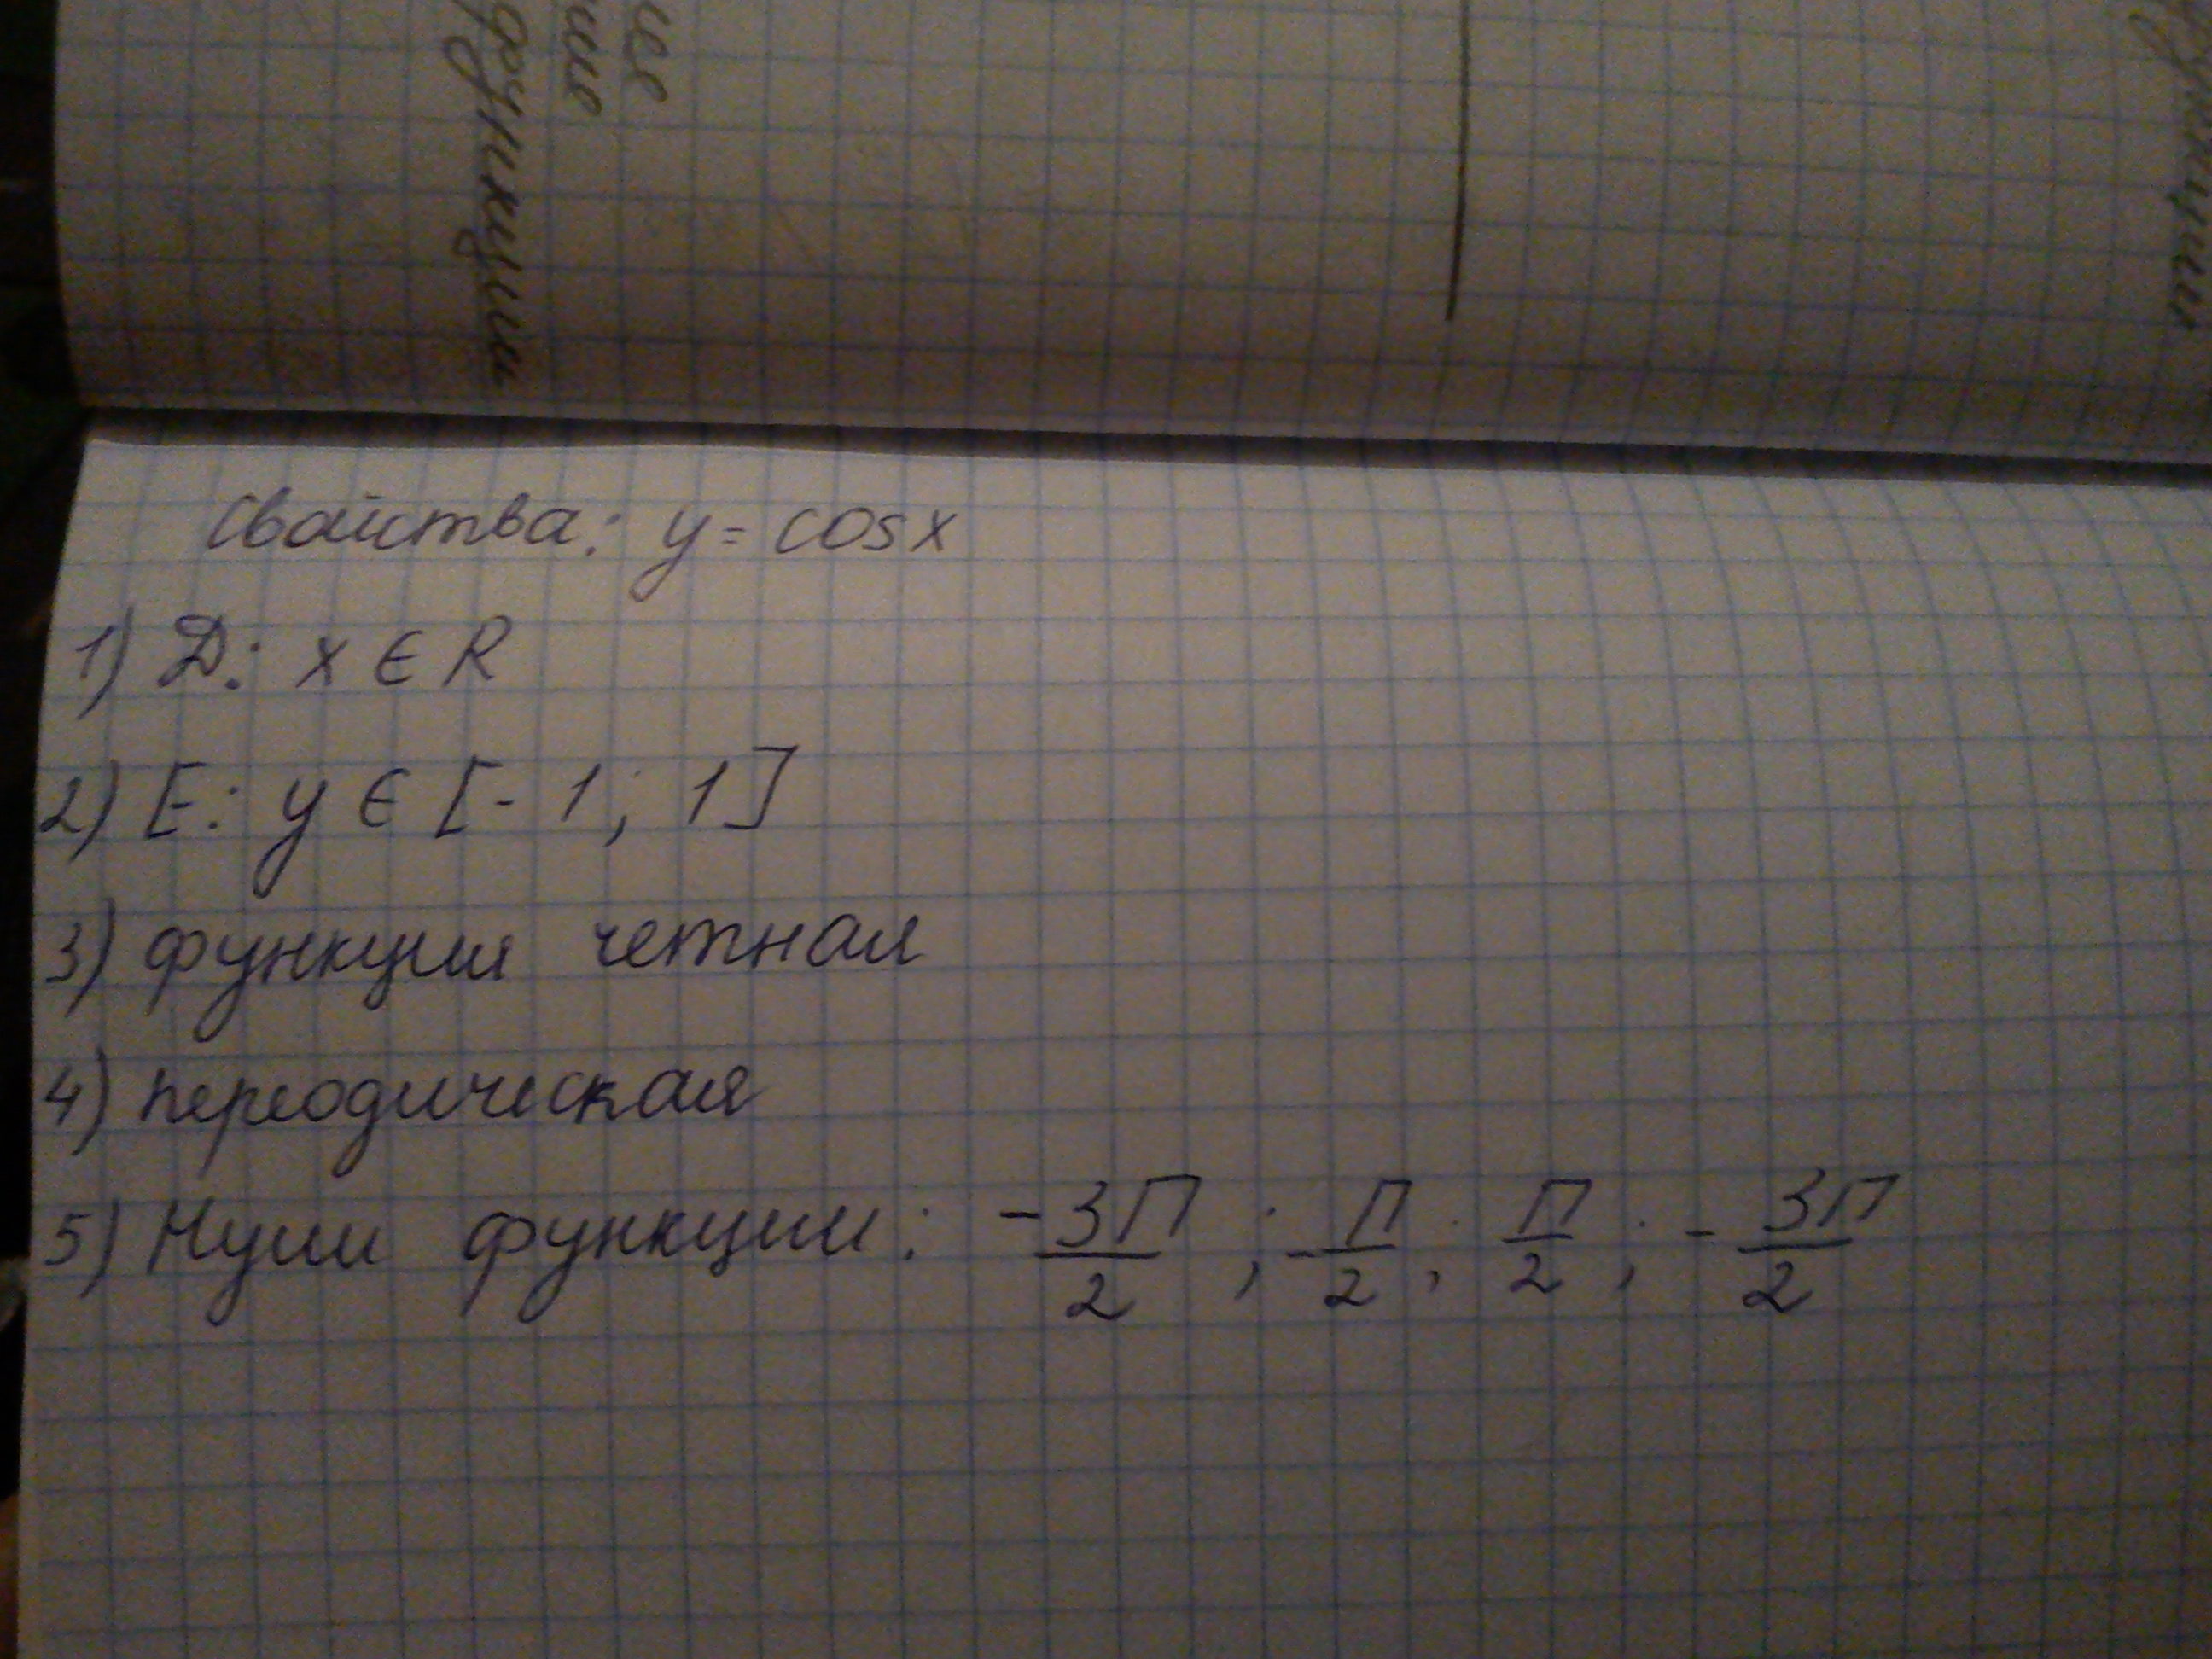 ие
ния
функции
функции
Свойства: y = cos x
1) D: x ∈ R
2) E: y ∈ [- 1 ; 1]
3) функция четная
4) переодическая
5) Нули функции: -3П/2 ; -П/2 ; П/2 ; -3П/2